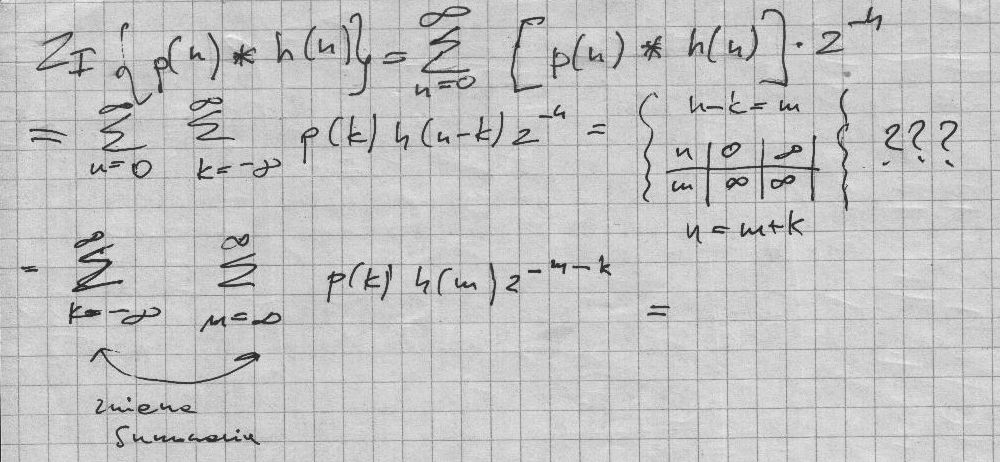 Z_I { p(n) * h(n) } = ∑_{n=0}^{∞} [ p(n) * h(n) ] · z^{-n}
= ∑_{n=0}^{∞} ∑_{k=-∞}^{∞} p(k) h(n-k) z^{-n} = { n-k=m
n | 0 | ∞
m | ∞ | ∞
n = m+k } ???
= ∑_{k=-∞}^{∞} ∑_{m=∞}^{∞} p(k) h(m) z^{-m-k} =
zmiana
sumowania